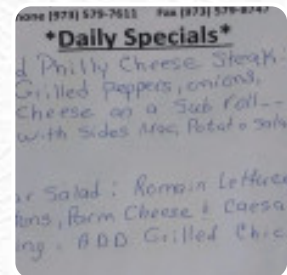 hone (973) 579-7611 Fax (973) 579-8747
*Daily Specials*
d Philly Cheese Steak:
Grilled Peppers, onions,
Cheese on a Sub roll--
with Sides Mac, Potato Sala
ar Salad: Romain Lettuce
tons, Parm Cheese & Caesa
ing. ADD Grilled Chic